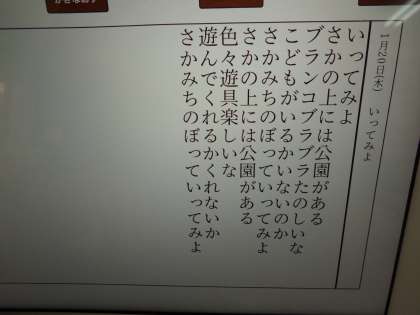 1月20日(木) いってみよ
いってみよ
さかの上には公園がある
ブランコブラブラたのしいな
こどもがいるかいないのか
さかみちのぼっていってみよ
さかの上には公園がある
色々遊具楽しいな
遊んでくれるかくれないか
さかみちのぼっていってみよ